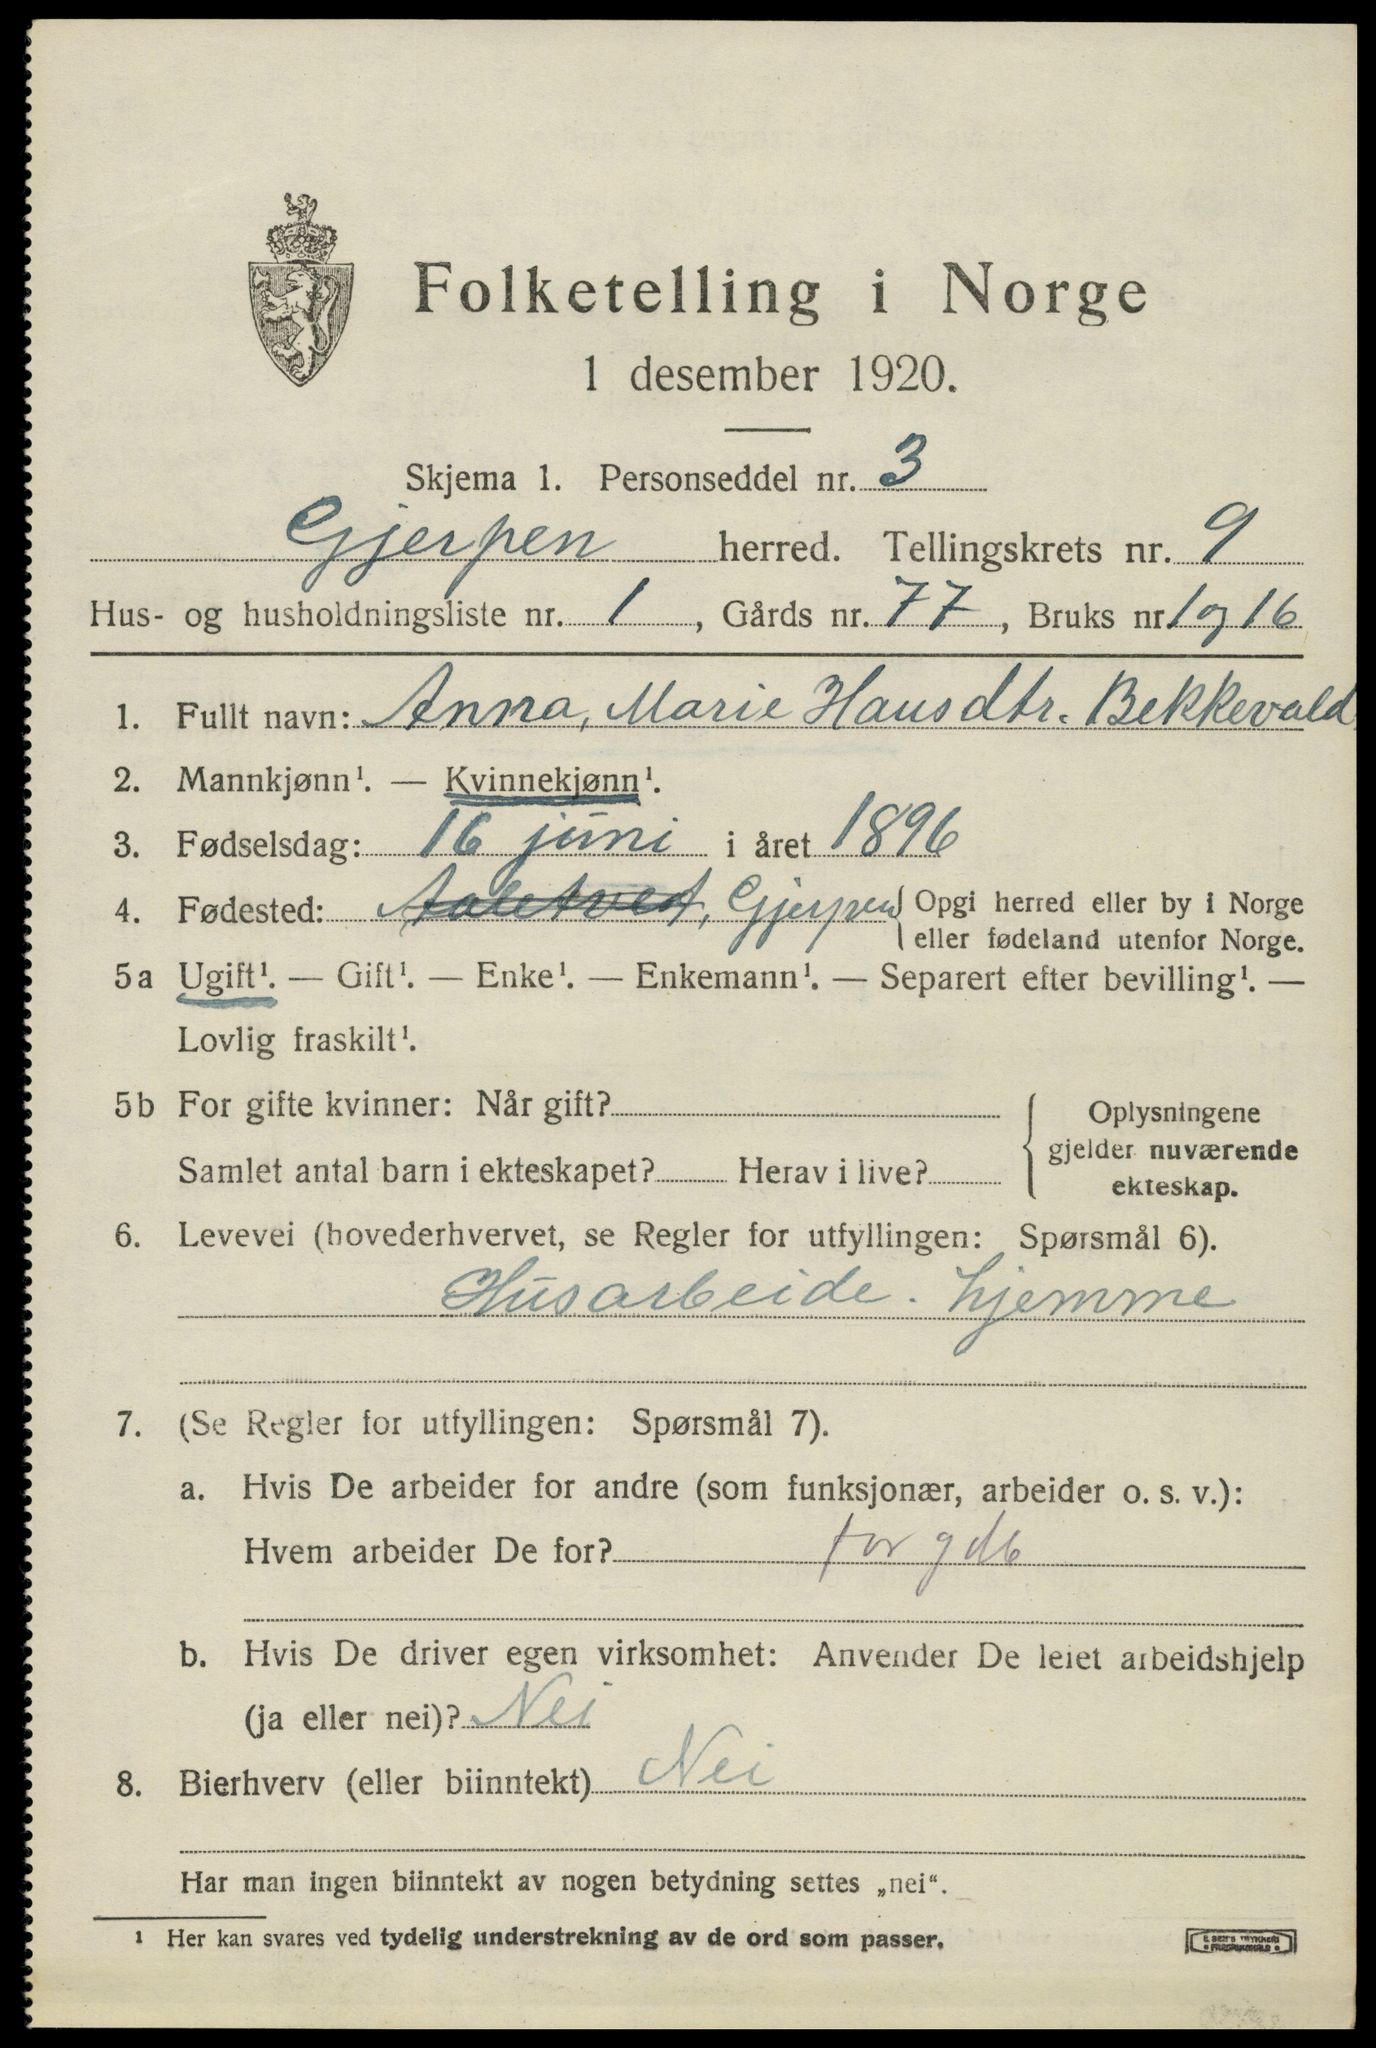 Folketelling i Norge
1 desember 1920.
Skjema 1. Personseddel nr. 3
Gjerpen herred. Tellingskrets nr. 9
Hus- og husholdningsliste nr. 1, Gårds nr. 77, Bruks nr. 1 og 16
1. Fullt navn: Anna, Marie Hansdtr. Bekkevold
2. Mannkjønn¹. — Kvinnekjønn¹.
3. Fødselsdag: 16 juni i året 1896
4. Fødested: Gjerpen { Opgi herred eller by i Norge
eller fødeland utenfor Norge.
5a Ugift¹. — Gift¹. — Enke¹. — Enkemann¹. — Separert efter bevilling¹. —
Lovlig fraskilt¹.
5b For gifte kvinner: Når gift?
Samlet antal barn i ekteskapet? Herav i live?
{ Oplysningene
gjelder nuværende
ekteskap.
6. Levevei (hovederhvervet, se Regler for utfyllingen: Spørsmål 6).
Husarbeide. hjemme
7. (Se Regler for utfyllingen: Spørsmål 7).
a. Hvis De arbeider for andre (som funksjonær, arbeider o. s. v.):
Hvem arbeider De for?
b. Hvis De driver egen virksomhet: Anvender De leiet arbeidshjelp
(ja eller nei)? Nei
8. Bierhverv (eller biinntekt) Nei
Har man ingen biinntekt av nogen betydning settes „nei“.
¹ Her kan svares ved tydelig understrekning av de ord som passer.